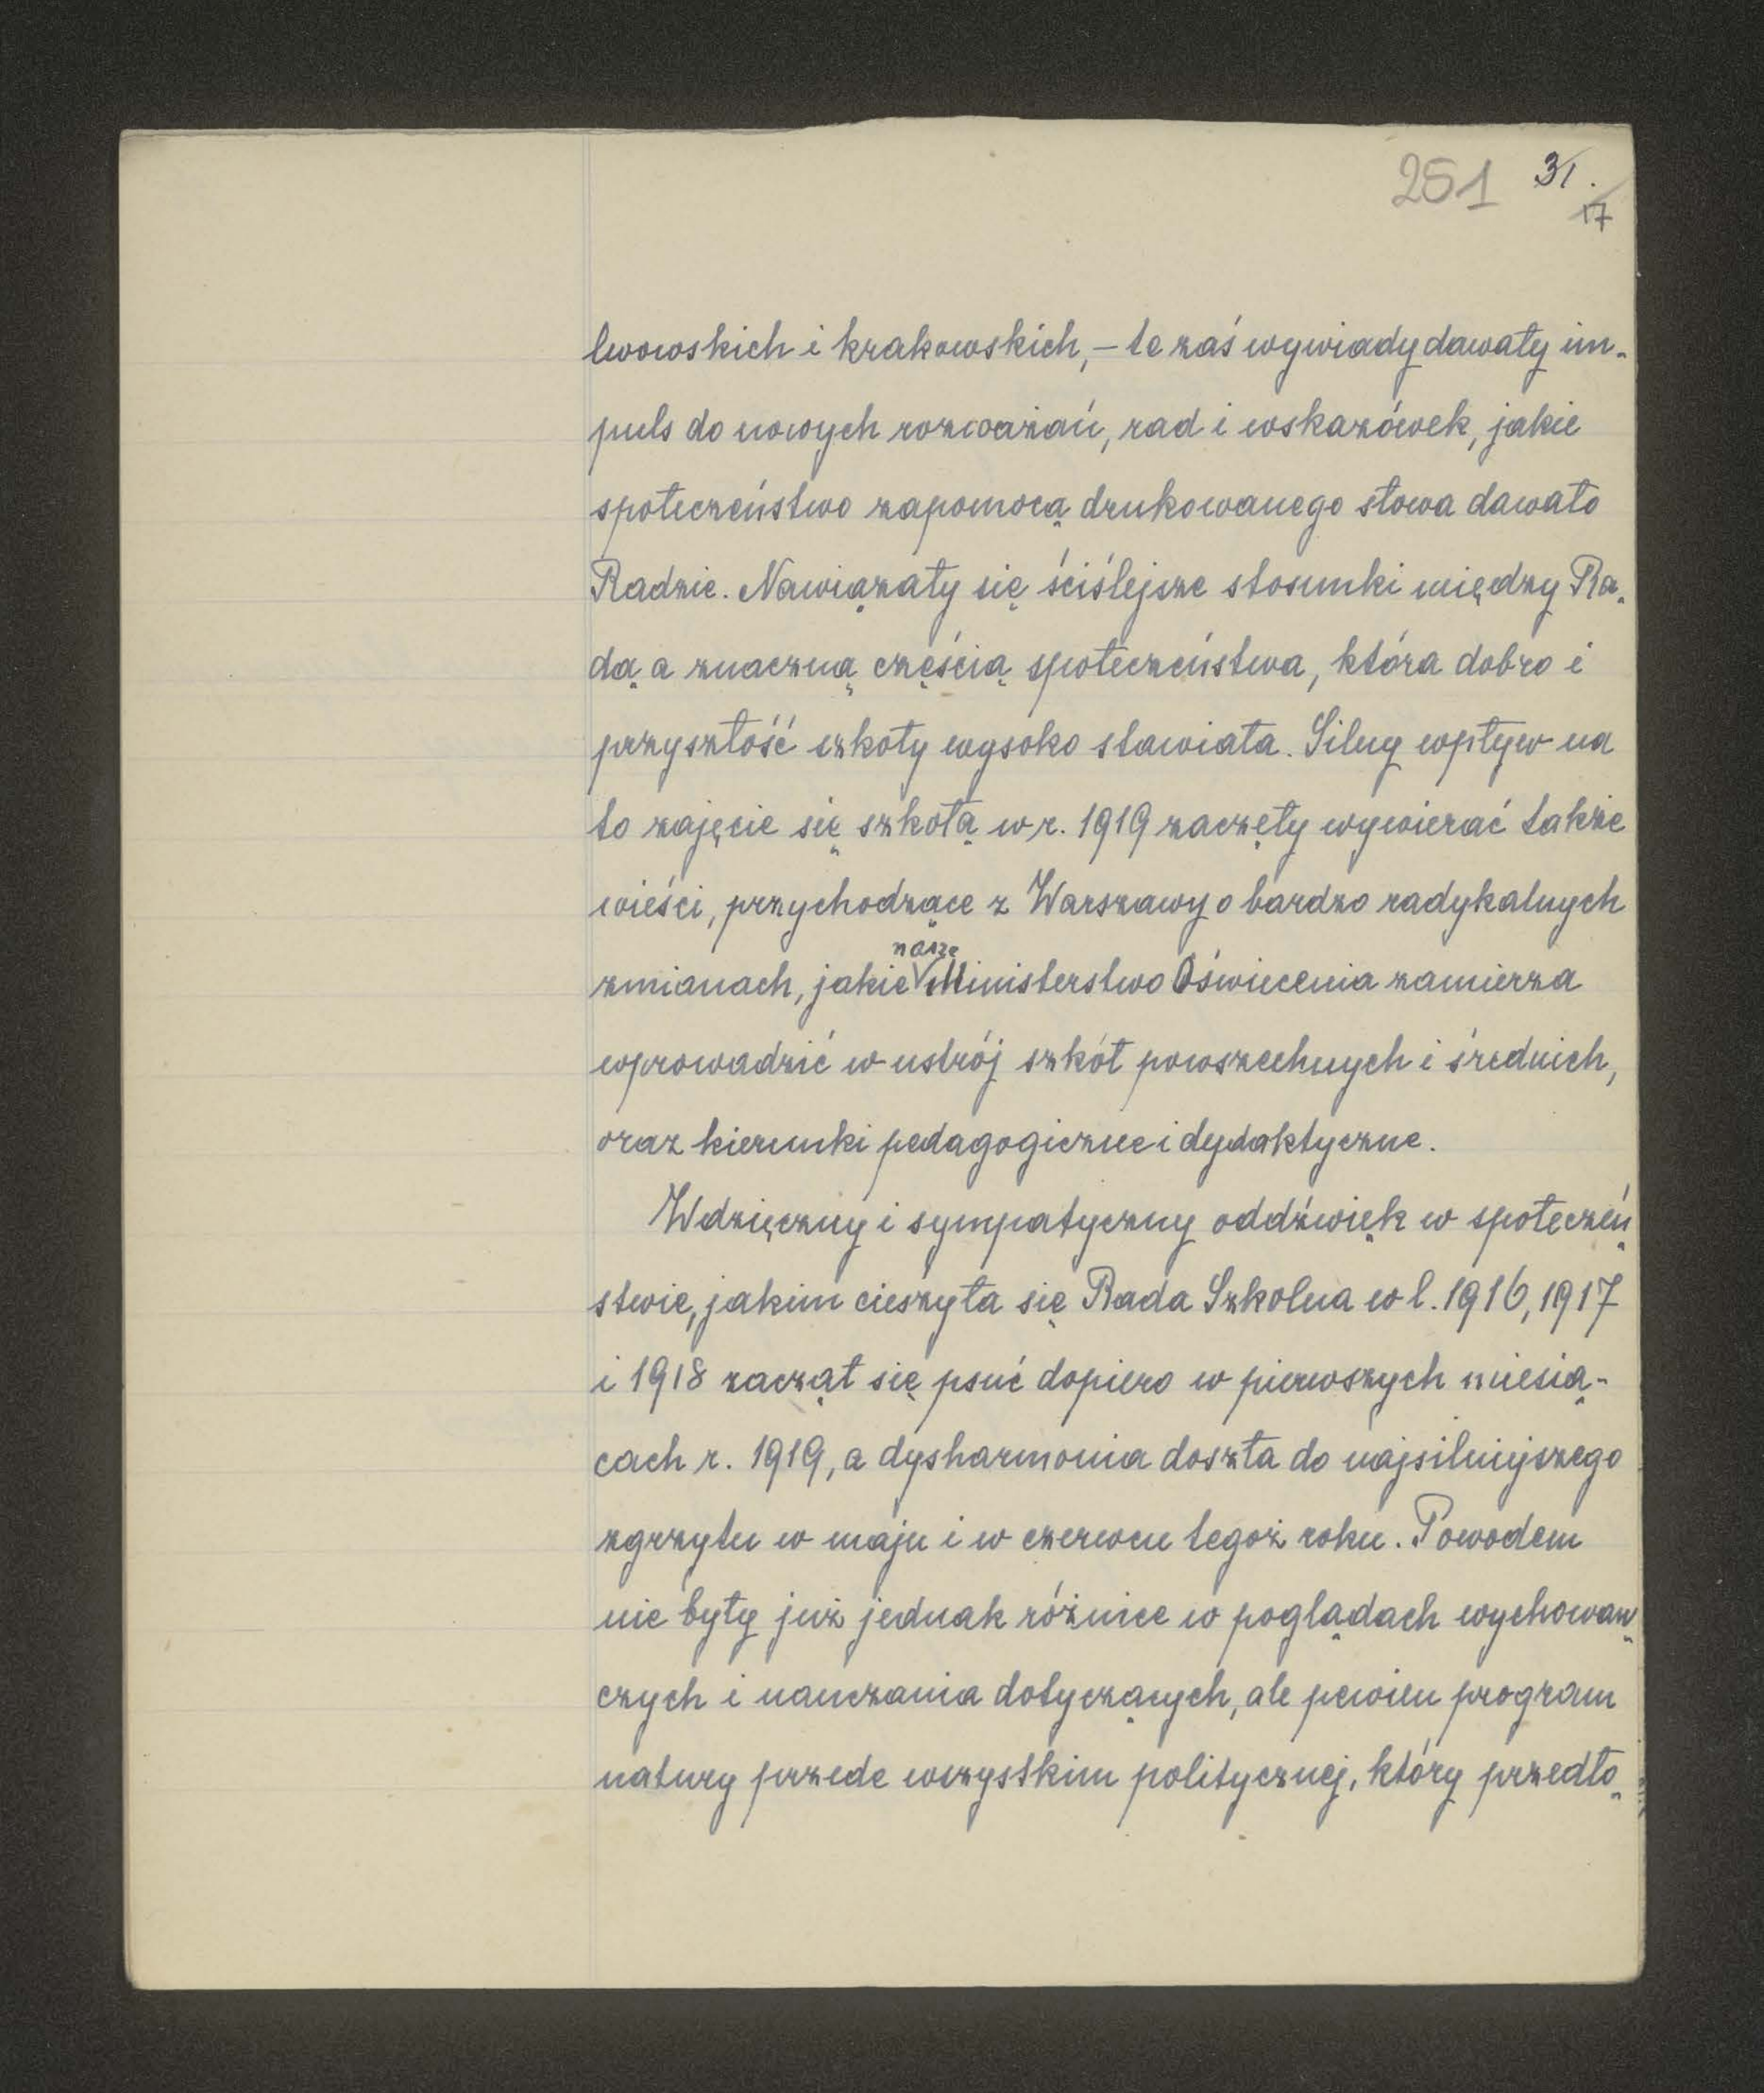 251 31.
17
lwowskich i krakowskich, – te zaś wywiady dawały im-
puls do nowych rozważań, rad i wskazówek, jakie
społeczeństwo zapomocą drukowanego słowa dawało
Radzie. Nawiązały się ściślejsze stosunki między Ra-
dą a znaczną częścią społeczeństwa, która dobro i
przyszłość szkoły wysoko stawiała. Silny wpływ na
to zajęcie się szkołą w r. 1919 zaczęły wywierać także
wieści, przychodzące z Warszawy o bardzo radykalnych
nasze
zmianach, jakie Ministerstwo Oświecenia zamierza
wprowadzić w ustrój szkół powszechnych i średnich,
oraz kierunki pedagogiczne i dydaktyczne.
Wdzięczny i sympatyczny oddźwięk w społeczeń-
stwie, jakim cieszyła się Rada Szkolna w l. 1916, 1917
i 1918 zaczął się psuć dopiero w pierwszych miesią-
cach r. 1919, a dysharmonia doszła do najsilniejszego
zgrzytu w maju i w czerwcu tegoż roku. Powodem
nie były już jednak różnice w poglądach wychowaw-
czych i nauczania dotyczących, ale pewien program
natury przede wszystkim politycznej, który przedło-